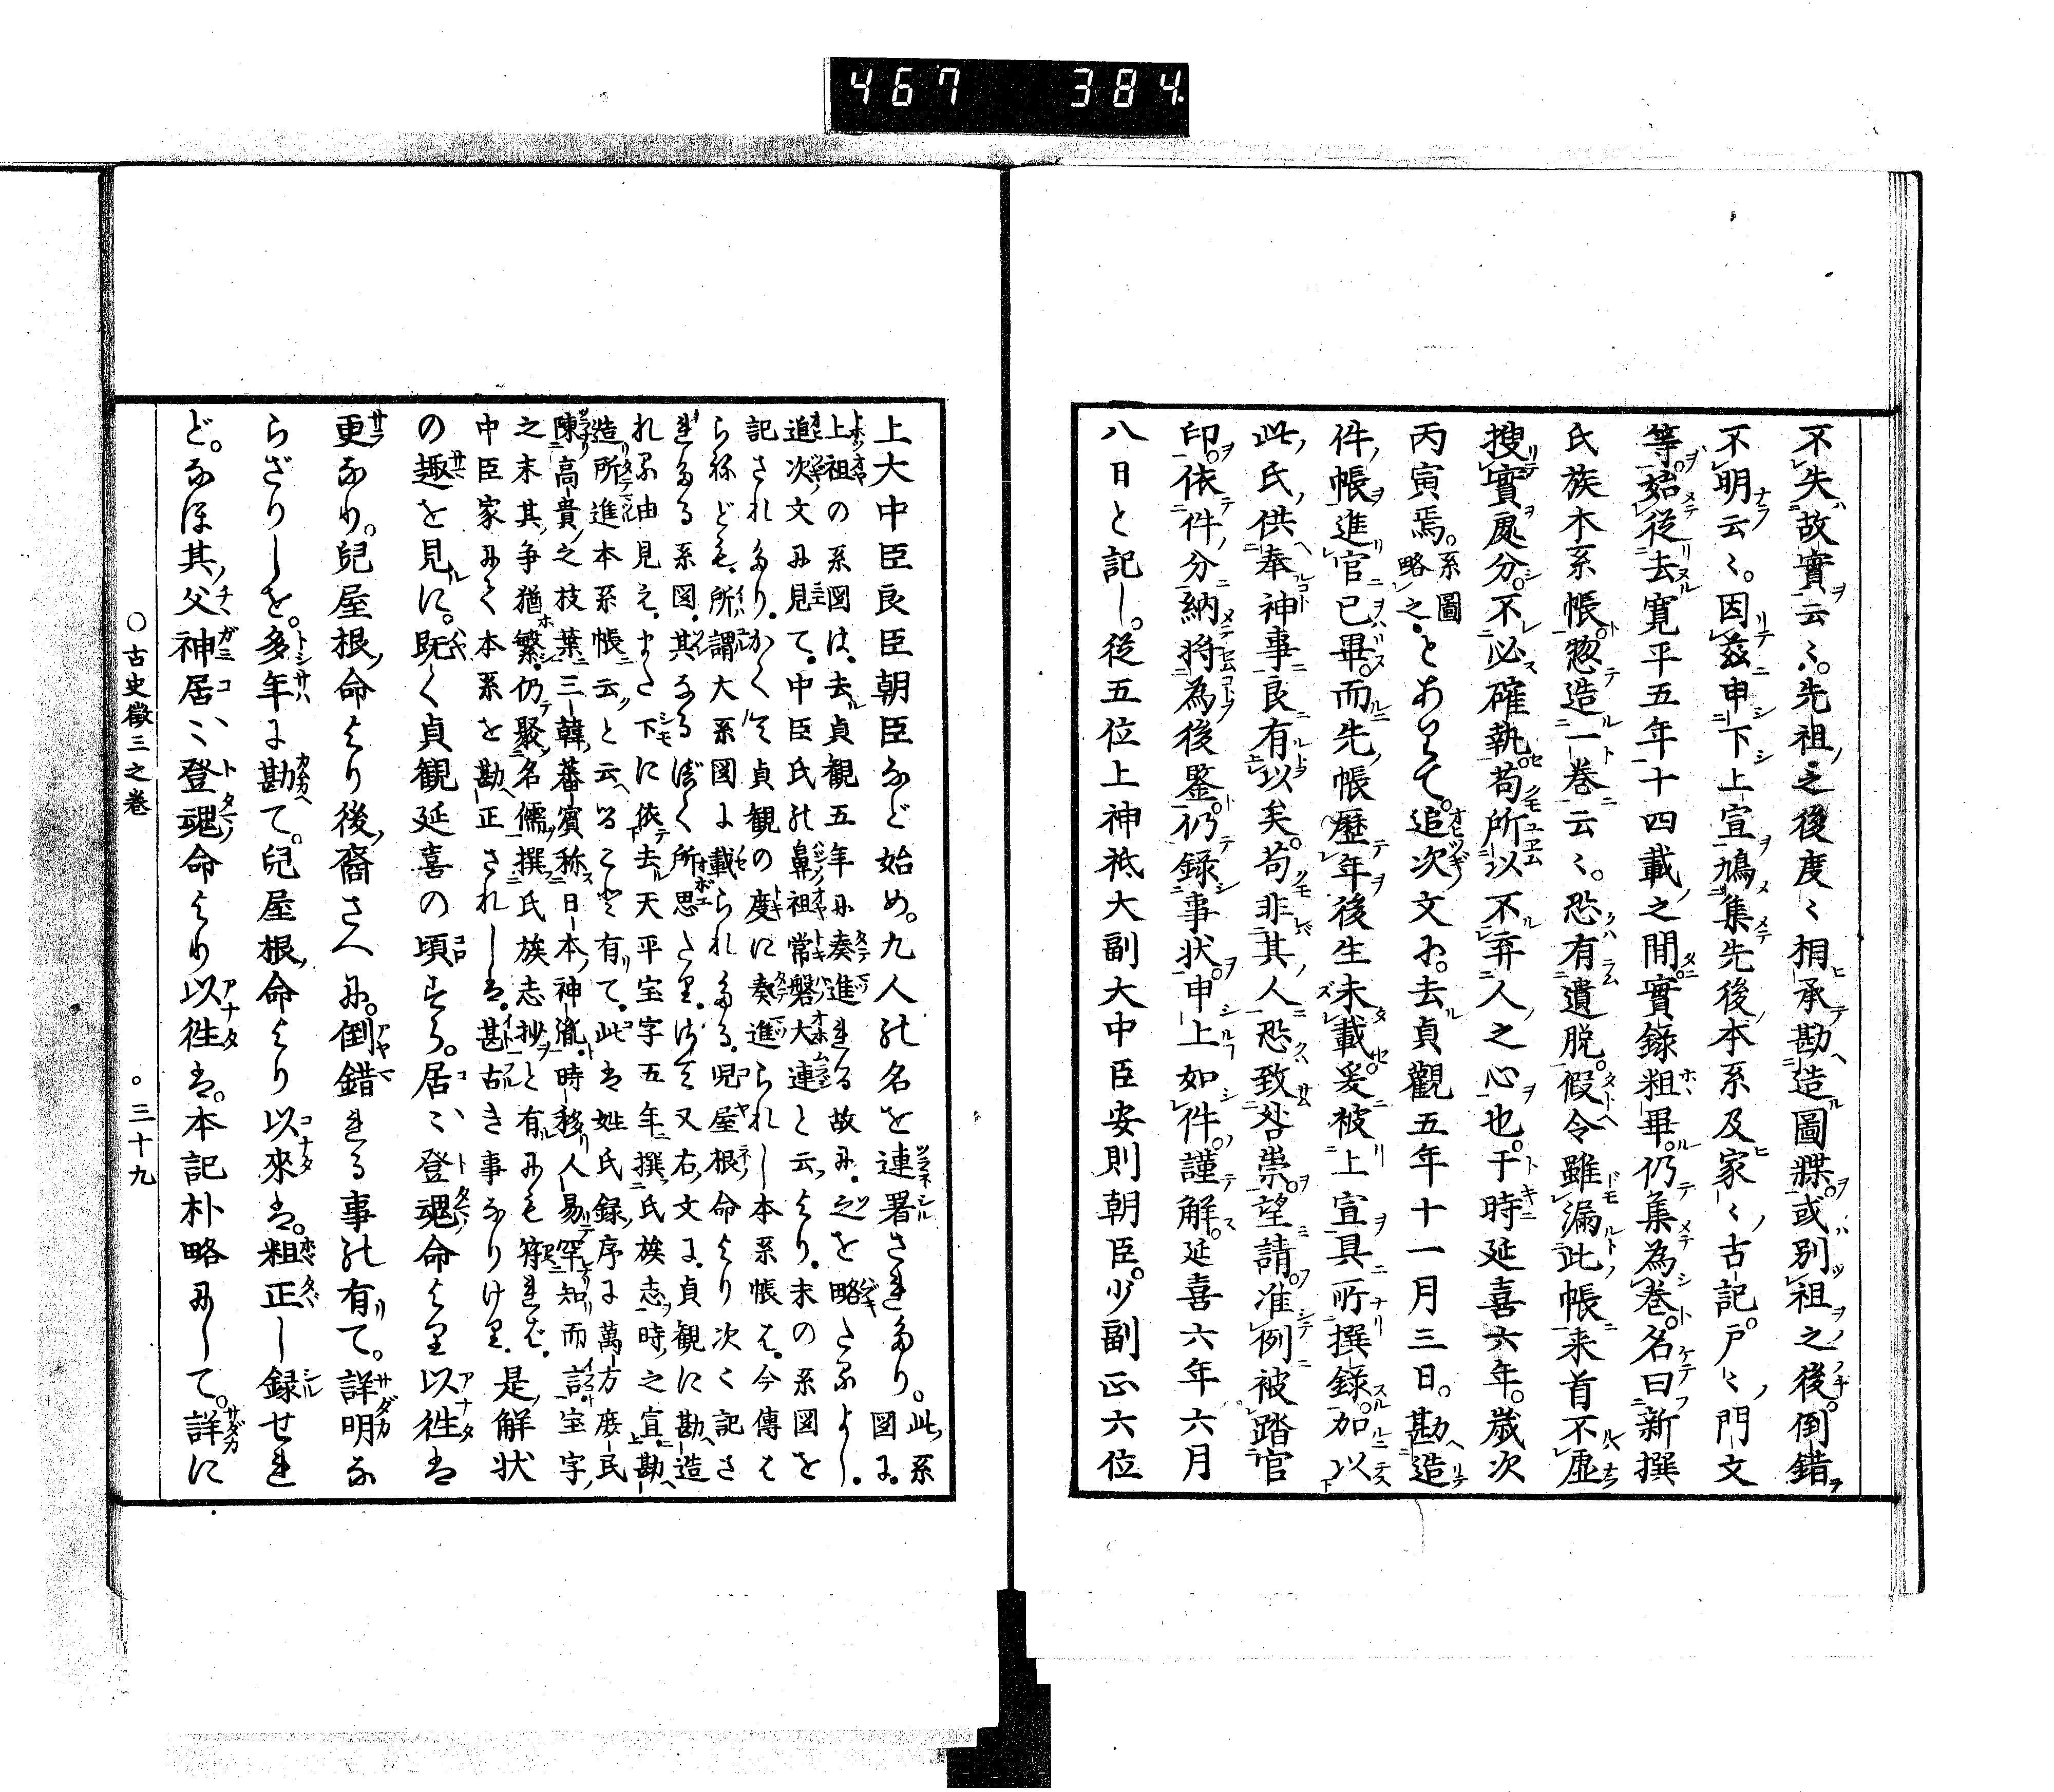 467 384
不失故實云〻。先祖之後度〻相承勘造圖牒。或別祖之後。倒錯
不明云〻。因茲申下上宣鳩集先後本系及家〻古記。戸〻門文
等。始從去寛平五年十四載之間。實錄粗畢。仍集為巻。名曰新撰
氏族本系帳。惣造一巻云〻。恐有遺脱。假令雖漏此帳来首不虚
捜實處分。不必確執。苟所以不弃人之心也。于時延喜六年。歳次
丙寅焉。系圖略之。とありて。追次文に。去貞觀五年十一月三日。勘造
件帳進官已畢。而先帳歴年後生未載。爰被上宣具所撰錄。加以
此氏供奉神事良有以矣。苟非其人恐致咎祟。望請准例被踏官
印。依件分納將為後鑒。仍録事状。申上如件。謹解。延喜六年六月
八日と記し。従五位上神祇大副大中臣安則朝臣。少副正六位
上大中臣良臣朝臣など始め。九人の名を連署されたり。此系図に。
上祖の系図は。去貞観五年に奏進れる故に。之を略たるよし。
追次文に見て。中臣氏の鼻祖常磐大連と云より。末の系図を
記されたり。かくて貞観の度に奏進られし本系帳は。今傳は
らねども。所謂大系図に載られたる。児屋根命より次〻記さ
れたる系図。其なるべく所思たり。さて又右文に。貞観に勘造
れる由見え。また下に依去天平宝字五年撰氏族志時之宣勘
造所進本系帳云と云ることも有て。此は姓氏録序に萬方庶民
陳高貴之枝葉三韓蕃賓称日本神胤。時移人易罕知而言宝字
之末其争猶繁。仍聚名儒撰氏族志抄と有にも符れば。
中臣家にて本系を勘正されしは。甚古き事なりけり。是解状
の趣を見に。既く貞観延喜の頃すら。居〻登魂命より以徃は
更なり。児屋根命より後裔さへに。倒錯れる事の有て。詳明な
らざりしを。多年に勘て。児屋根命より以來は。粗正し録せれ
ど。なほ其父神居〻登魂命より以徃は。本記朴略にして。詳に
○古史徴三之巻 。三十九